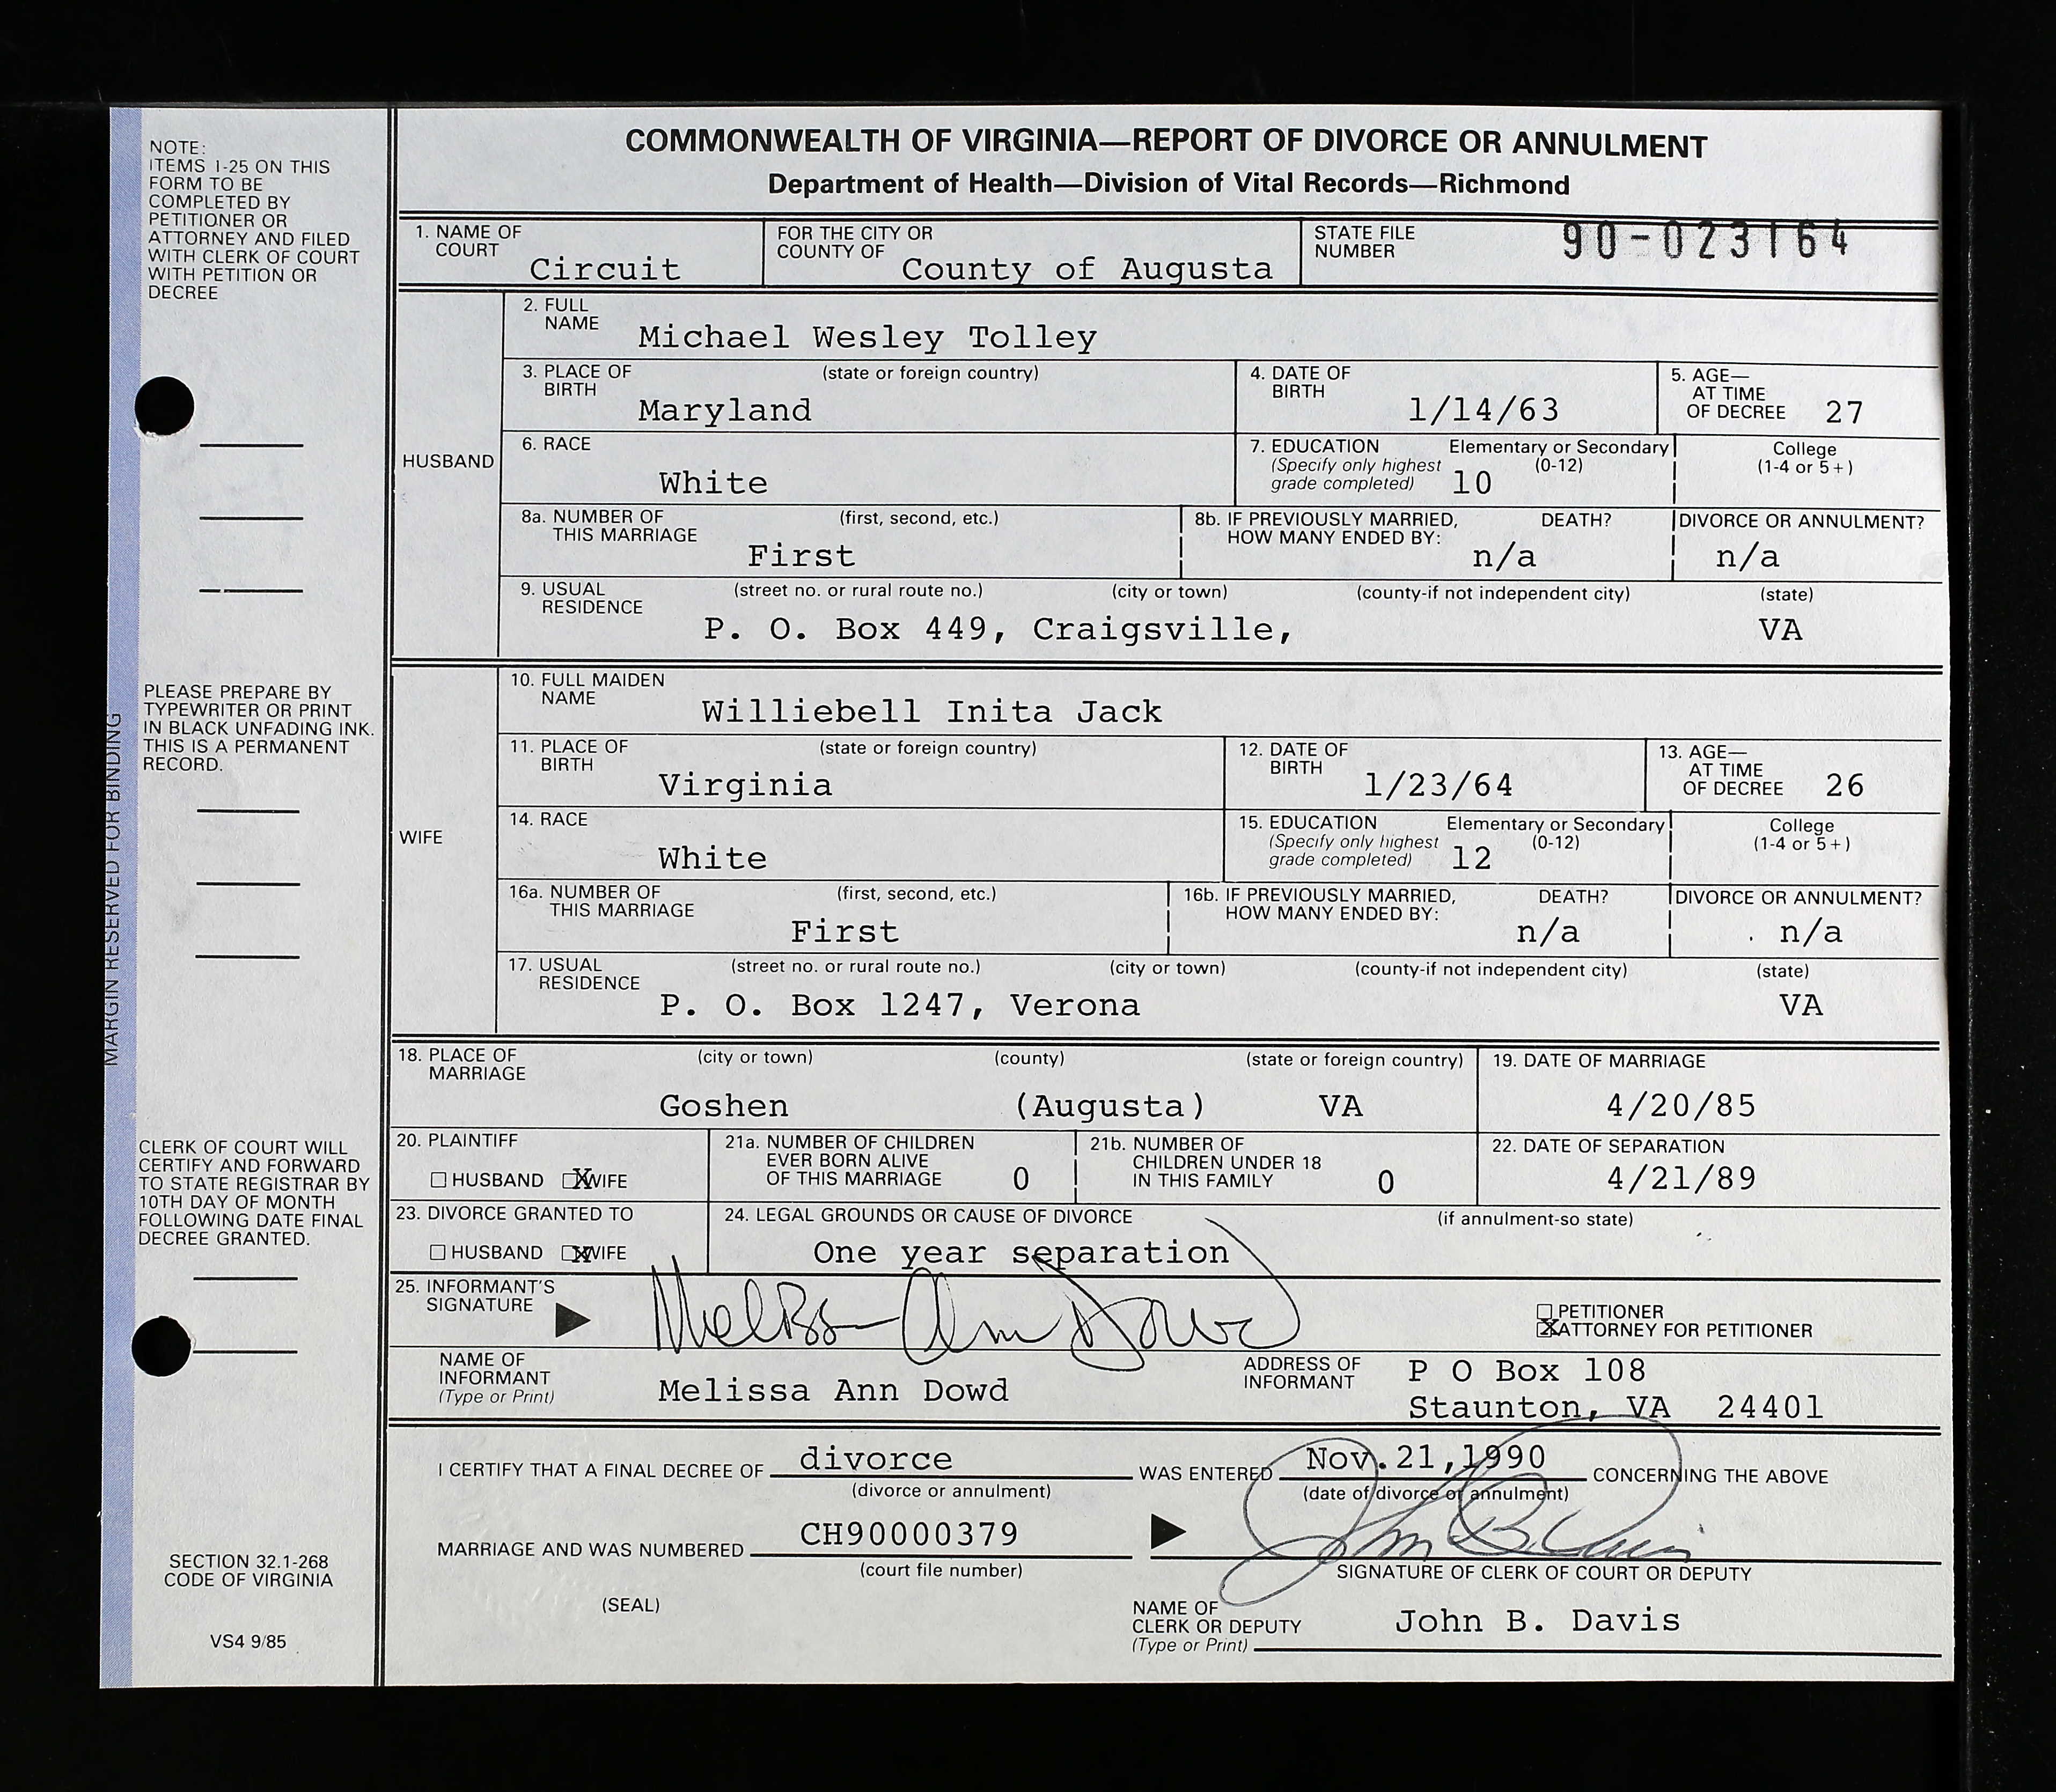 COMMONWEALTH OF VIRGINIA—REPORT OF DIVORCE OR ANNULMENT
Department of Health—Division of Vital Records—Richmond
NOTE:
ITEMS 1-25 ON THIS
FORM TO BE
COMPLETED BY
PETITIONER OR
ATTORNEY AND FILED
WITH CLERK OF COURT
WITH PETITION OR
DECREE
PLEASE PREPARE BY
TYPEWRITER OR PRINT
IN BLACK UNFADING INK.
THIS IS A PERMANENT
RECORD.
MARGIN RESERVED FOR BINDING
CLERK OF COURT WILL
CERTIFY AND FORWARD
TO STATE REGISTRAR BY
10TH DAY OF MONTH
FOLLOWING DATE FINAL
DECREE GRANTED.
SECTION 32.1-268
CODE OF VIRGINIA
VS4 9/85
1. NAME OF COURT Circuit
FOR THE CITY OR COUNTY OF County of Augusta
STATE FILE NUMBER 90-023164
HUSBAND
2. FULL NAME Michael Wesley Tolley
3. PLACE OF BIRTH (state or foreign country) Maryland
4. DATE OF BIRTH 1/14/63
5. AGE— AT TIME OF DECREE 27
6. RACE White
7. EDUCATION (Specify only highest grade completed) Elementary or Secondary (0-12) 10 College (1-4 or 5+)
8a. NUMBER OF THIS MARRIAGE (first, second, etc.) First
8b. IF PREVIOUSLY MARRIED, HOW MANY ENDED BY: DEATH? n/a DIVORCE OR ANNULMENT? n/a
9. USUAL RESIDENCE (street no. or rural route no.) (city or town) (county-if not independent city) (state)
P. O. Box 449, Craigsville, VA
WIFE
10. FULL MAIDEN NAME Williebell Inita Jack
11. PLACE OF BIRTH (state or foreign country) Virginia
12. DATE OF BIRTH 1/23/64
13. AGE— AT TIME OF DECREE 26
14. RACE White
15. EDUCATION (Specify only highest grade completed) Elementary or Secondary (0-12) 12 College (1-4 or 5+)
16a. NUMBER OF THIS MARRIAGE (first, second, etc.) First
16b. IF PREVIOUSLY MARRIED, HOW MANY ENDED BY: DEATH? n/a DIVORCE OR ANNULMENT? n/a
17. USUAL RESIDENCE (street no. or rural route no.) (city or town) (county-if not independent city) (state)
P. O. Box 1247, Verona VA
18. PLACE OF MARRIAGE (city or town) (county) (state or foreign country)
Goshen (Augusta) VA
19. DATE OF MARRIAGE 4/20/85
20. PLAINTIFF HUSBAND X WIFE
21a. NUMBER OF CHILDREN EVER BORN ALIVE OF THIS MARRIAGE 0
21b. NUMBER OF CHILDREN UNDER 18 IN THIS FAMILY 0
22. DATE OF SEPARATION 4/21/89
23. DIVORCE GRANTED TO HUSBAND X WIFE
24. LEGAL GROUNDS OR CAUSE OF DIVORCE (if annulment-so state)
One year separation
25. INFORMANT'S SIGNATURE Melissa Ann Dowd
PETITIONER
X ATTORNEY FOR PETITIONER
NAME OF INFORMANT (Type or Print) Melissa Ann Dowd
ADDRESS OF INFORMANT P O Box 108
Staunton, VA 24401
I CERTIFY THAT A FINAL DECREE OF divorce WAS ENTERED Nov.21,1990 CONCERNING THE ABOVE
(divorce or annulment) (date of divorce or annulment)
MARRIAGE AND WAS NUMBERED CH90000379 John B. Davis
(court file number) SIGNATURE OF CLERK OF COURT OR DEPUTY
(SEAL)
NAME OF CLERK OR DEPUTY (Type or Print) John B. Davis